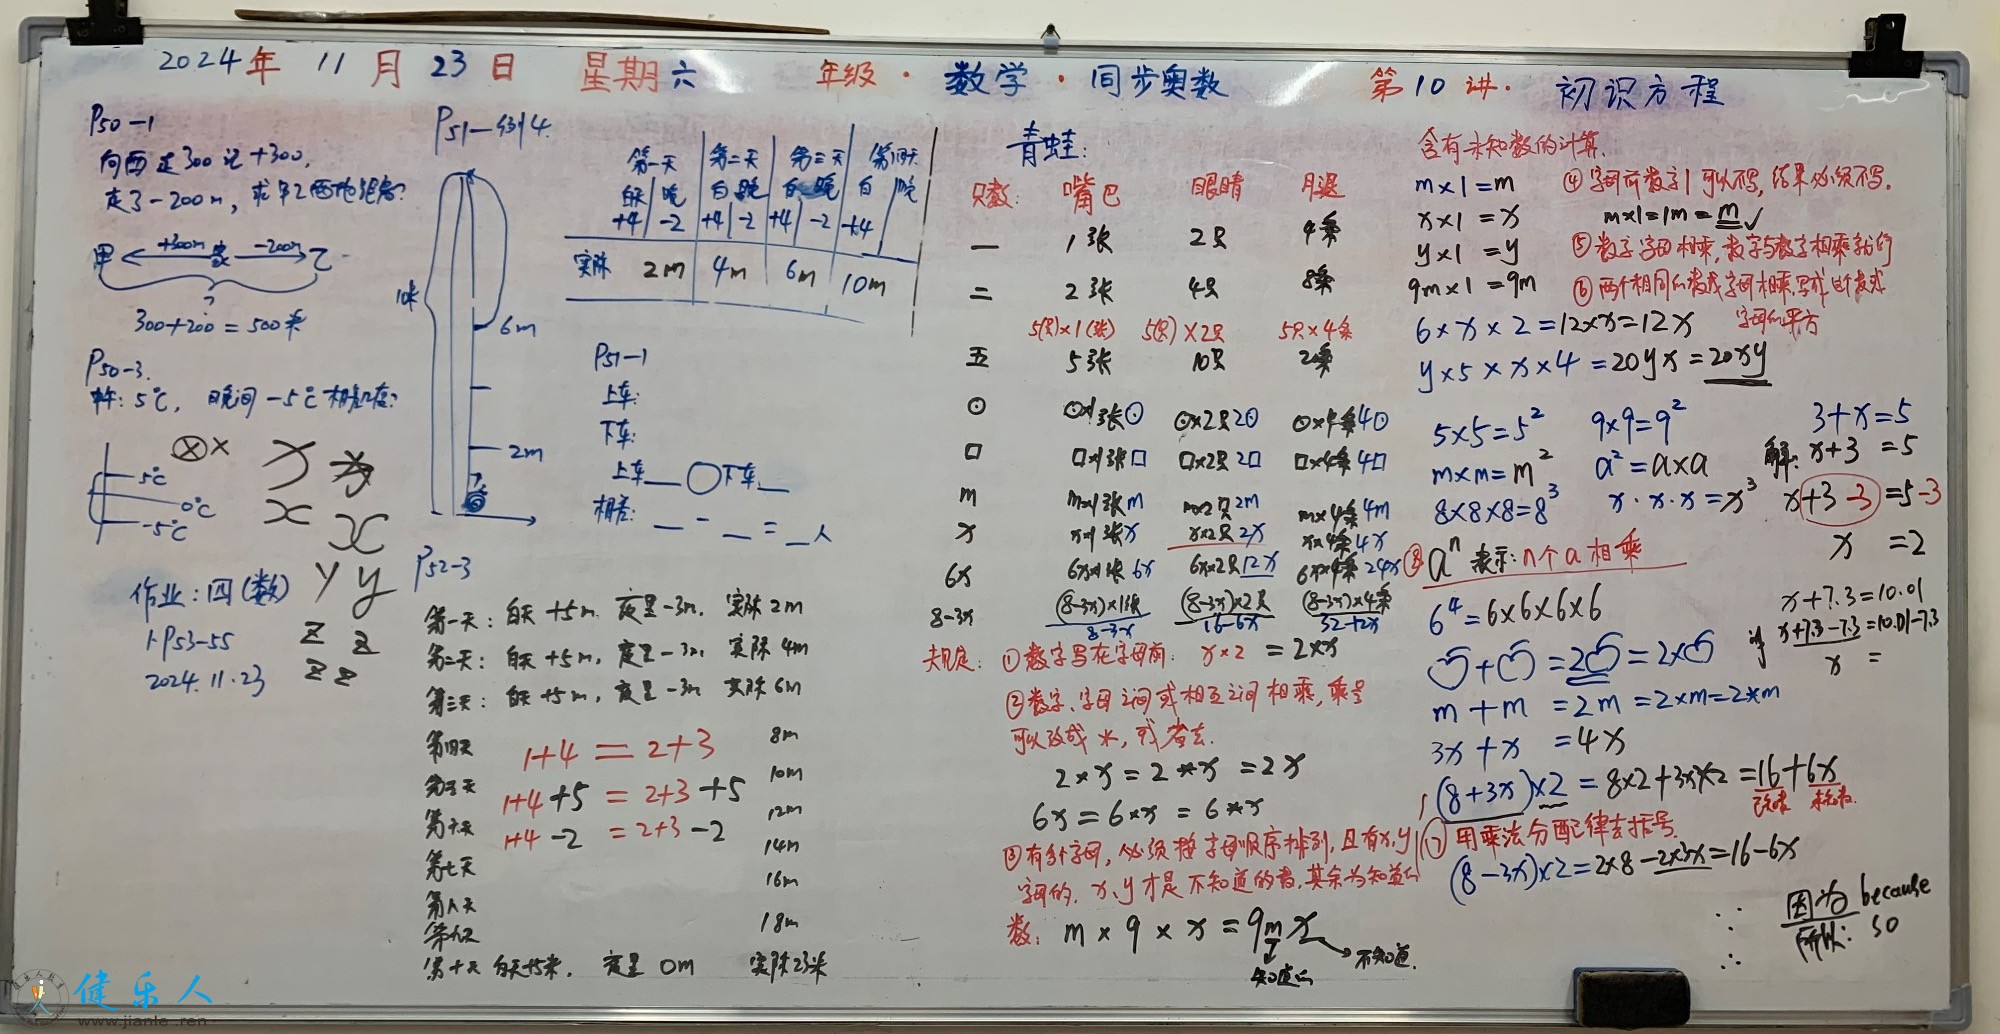 2024年 11月 23日 星期六 年级·数学·同步奥数 第10讲·初识方程
P50-1
向西走300记+300,
走了-200m, 求甲乙两地距离?
甲 +300m 家 -200m 乙
?
300+200=500米
P50-3.
5℃, 晚间 -5℃
5℃
0℃
-5℃
作业:四(数)
1、P53-55
2024.11.23
P51-例4.
10米
6m
2m
第一天 第二天 第三天 第四天
白天 晚 白 晚 白 晚 白 晚
+4 -2 +4 -2 +4 -2 +4
实际 2m 4m 6m 10m
P51-1
上车:
下车:
上车__○下车__
相差: __ - __ = __人
P52-3
第一天: 白天 +5m. 夜里 -3m. 实际 2m
第二天: 白天 +5m, 夜里 -3m. 实际 4m
第三天: 白天 +5m, 夜里 -3m 实际 6m
第四天 8m
第五天 10m
第六天 12m
第七天 14m
第八天 16m
第九天 18m
第十天 白天+5米, 夜里 0m 实际23米
1+4=2+3
1+4+5=2+3+5
1+4-2=2+3-2
青蛙:
只数: 嘴巴 眼睛 腿
一 1张 2只 4条
二 2张 4只 8条
5(只)×1(张) 5(只)×2只 5只×4条
五 5张 10只 20条
⊙ ⊙×1张⊙ ⊙×2只2⊙ ⊙×4条4⊙
□ □×1张□ □×2只2□ □×4条4□
m m×1张m m×2只2m m×4条4m
x x×1张x x×2只2x x×4条4x
6x 6x×1张6x 6x×2只12x 6x×4条24x
8-3x (8-3x)×1张 (8-3x)×2只 (8-3x)×4条
8-3x 16-6x 32-12x
规定: ①数字写在字母前: x×2=2×x
②数字、字母之间或相互之间相乘, 乘号
可以改成*, 或省去.
2*x=2*x=2x
6x=6*x=6*x
③有多个字母, 必须按字母顺序排列, 且有x,y
字母的. x、y才是不知道的数, 其余为知道的
数: m×9×x=9mx
知道的
不知道.
含有未知数的计算.
m×1=m
x×1=x
y×1=y
9m×1=9m
④字母前数字1可以不写, 结果必须不写.
m×1=1m=m✓
⑤数字字母相乘, 数字与数字相乘就行
⑥两个相同的数或字母相乘, 写成这个数或
字母的平方
6×x×2=12×x=12x
y×5×x×4=20yx=20xy
5×5=5² 9×9=9²
m×m=m² a²=a×a
8×8×8=8³ x·x·x=x³
⑧aⁿ表示:n个a相乘
6⁴=6×6×6×6
m+m=2m=2×m=2*m
3x+x=4x
(8+3x)×2=8×2+3x×2=16+6x
已知数 未知数.
⑦用乘法分配律去括号.
(8-3x)×2=2×8-2×3x=16-6x
3+x=5
解: x+3=5
x+3-3=5-3
x=2
x+7.3=10.01
x+7.3-7.3=10.01-7.3
x=
∵ 因为 because
∴ 所以: so
健乐人
www.jianle.ren